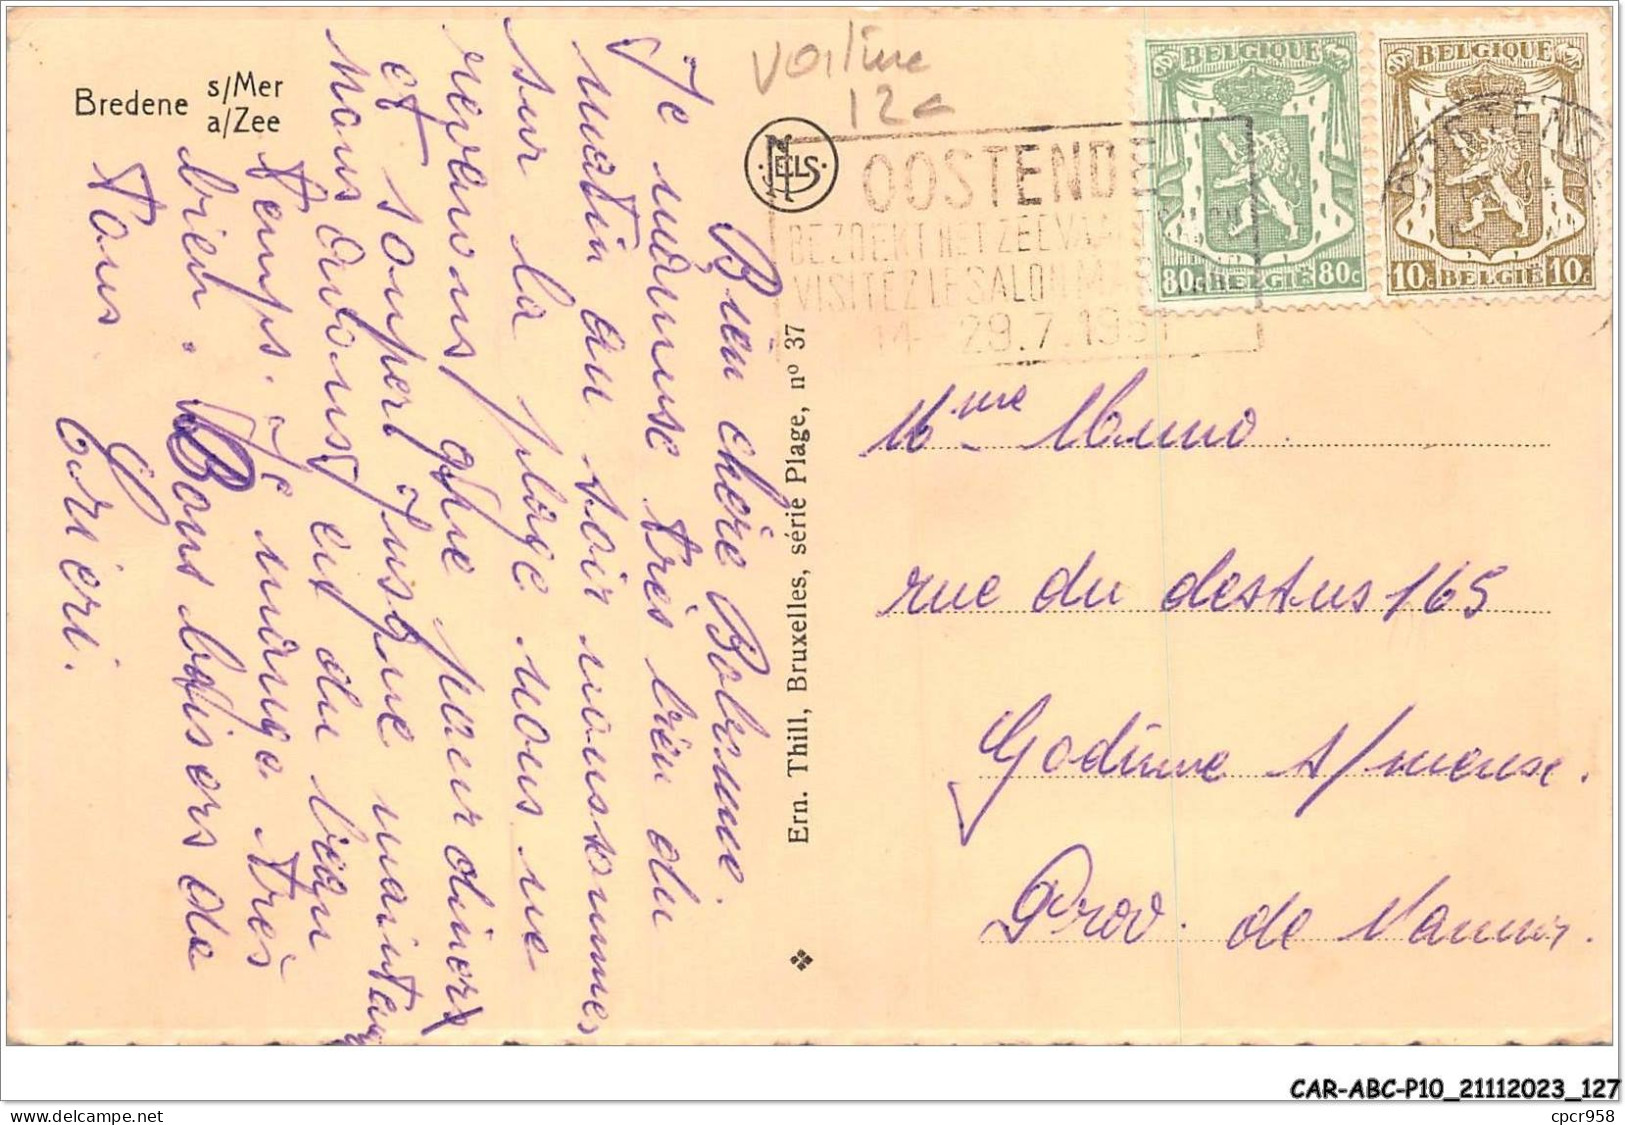 Bredene s/Mer
a/Zee
voiture
12c
NELS
OOSTENDE
BEZOEKT HET ZEEVAA
VISITEZ LE SALON MA
14 - 29.7.1951
BELGIQUE
80c BELGIË 80c
BELGIQUE
10c BELGIË 10c
Bien chère Bobonne.
Je m'amuse très bien du
matin au soir nous sommes
sur la plage nous ne
revenons que pour diner
et souper jusque maintenant
nous avons eut du beau
temps. Je mange très
bien. Bons baisers de
tous.
Ern. Thill, Bruxelles, série Plage, nº 37
Mme
rue du dessus 165
Godinne s/meuse.
Prov. de Namur.
CAR-ABC-P10_21112023_127
www.delcampe.net
cpcr958